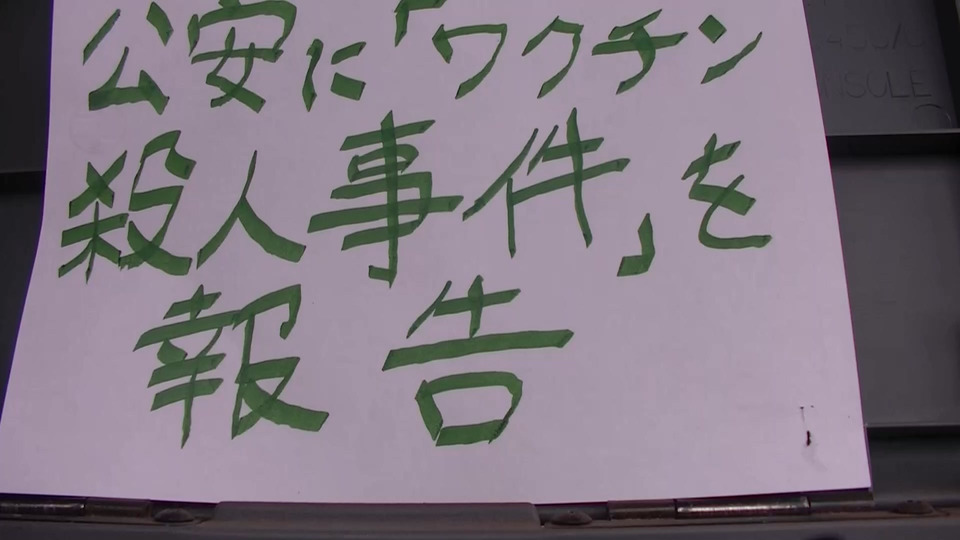 公安に「ワクチン
殺人事件」を
報告